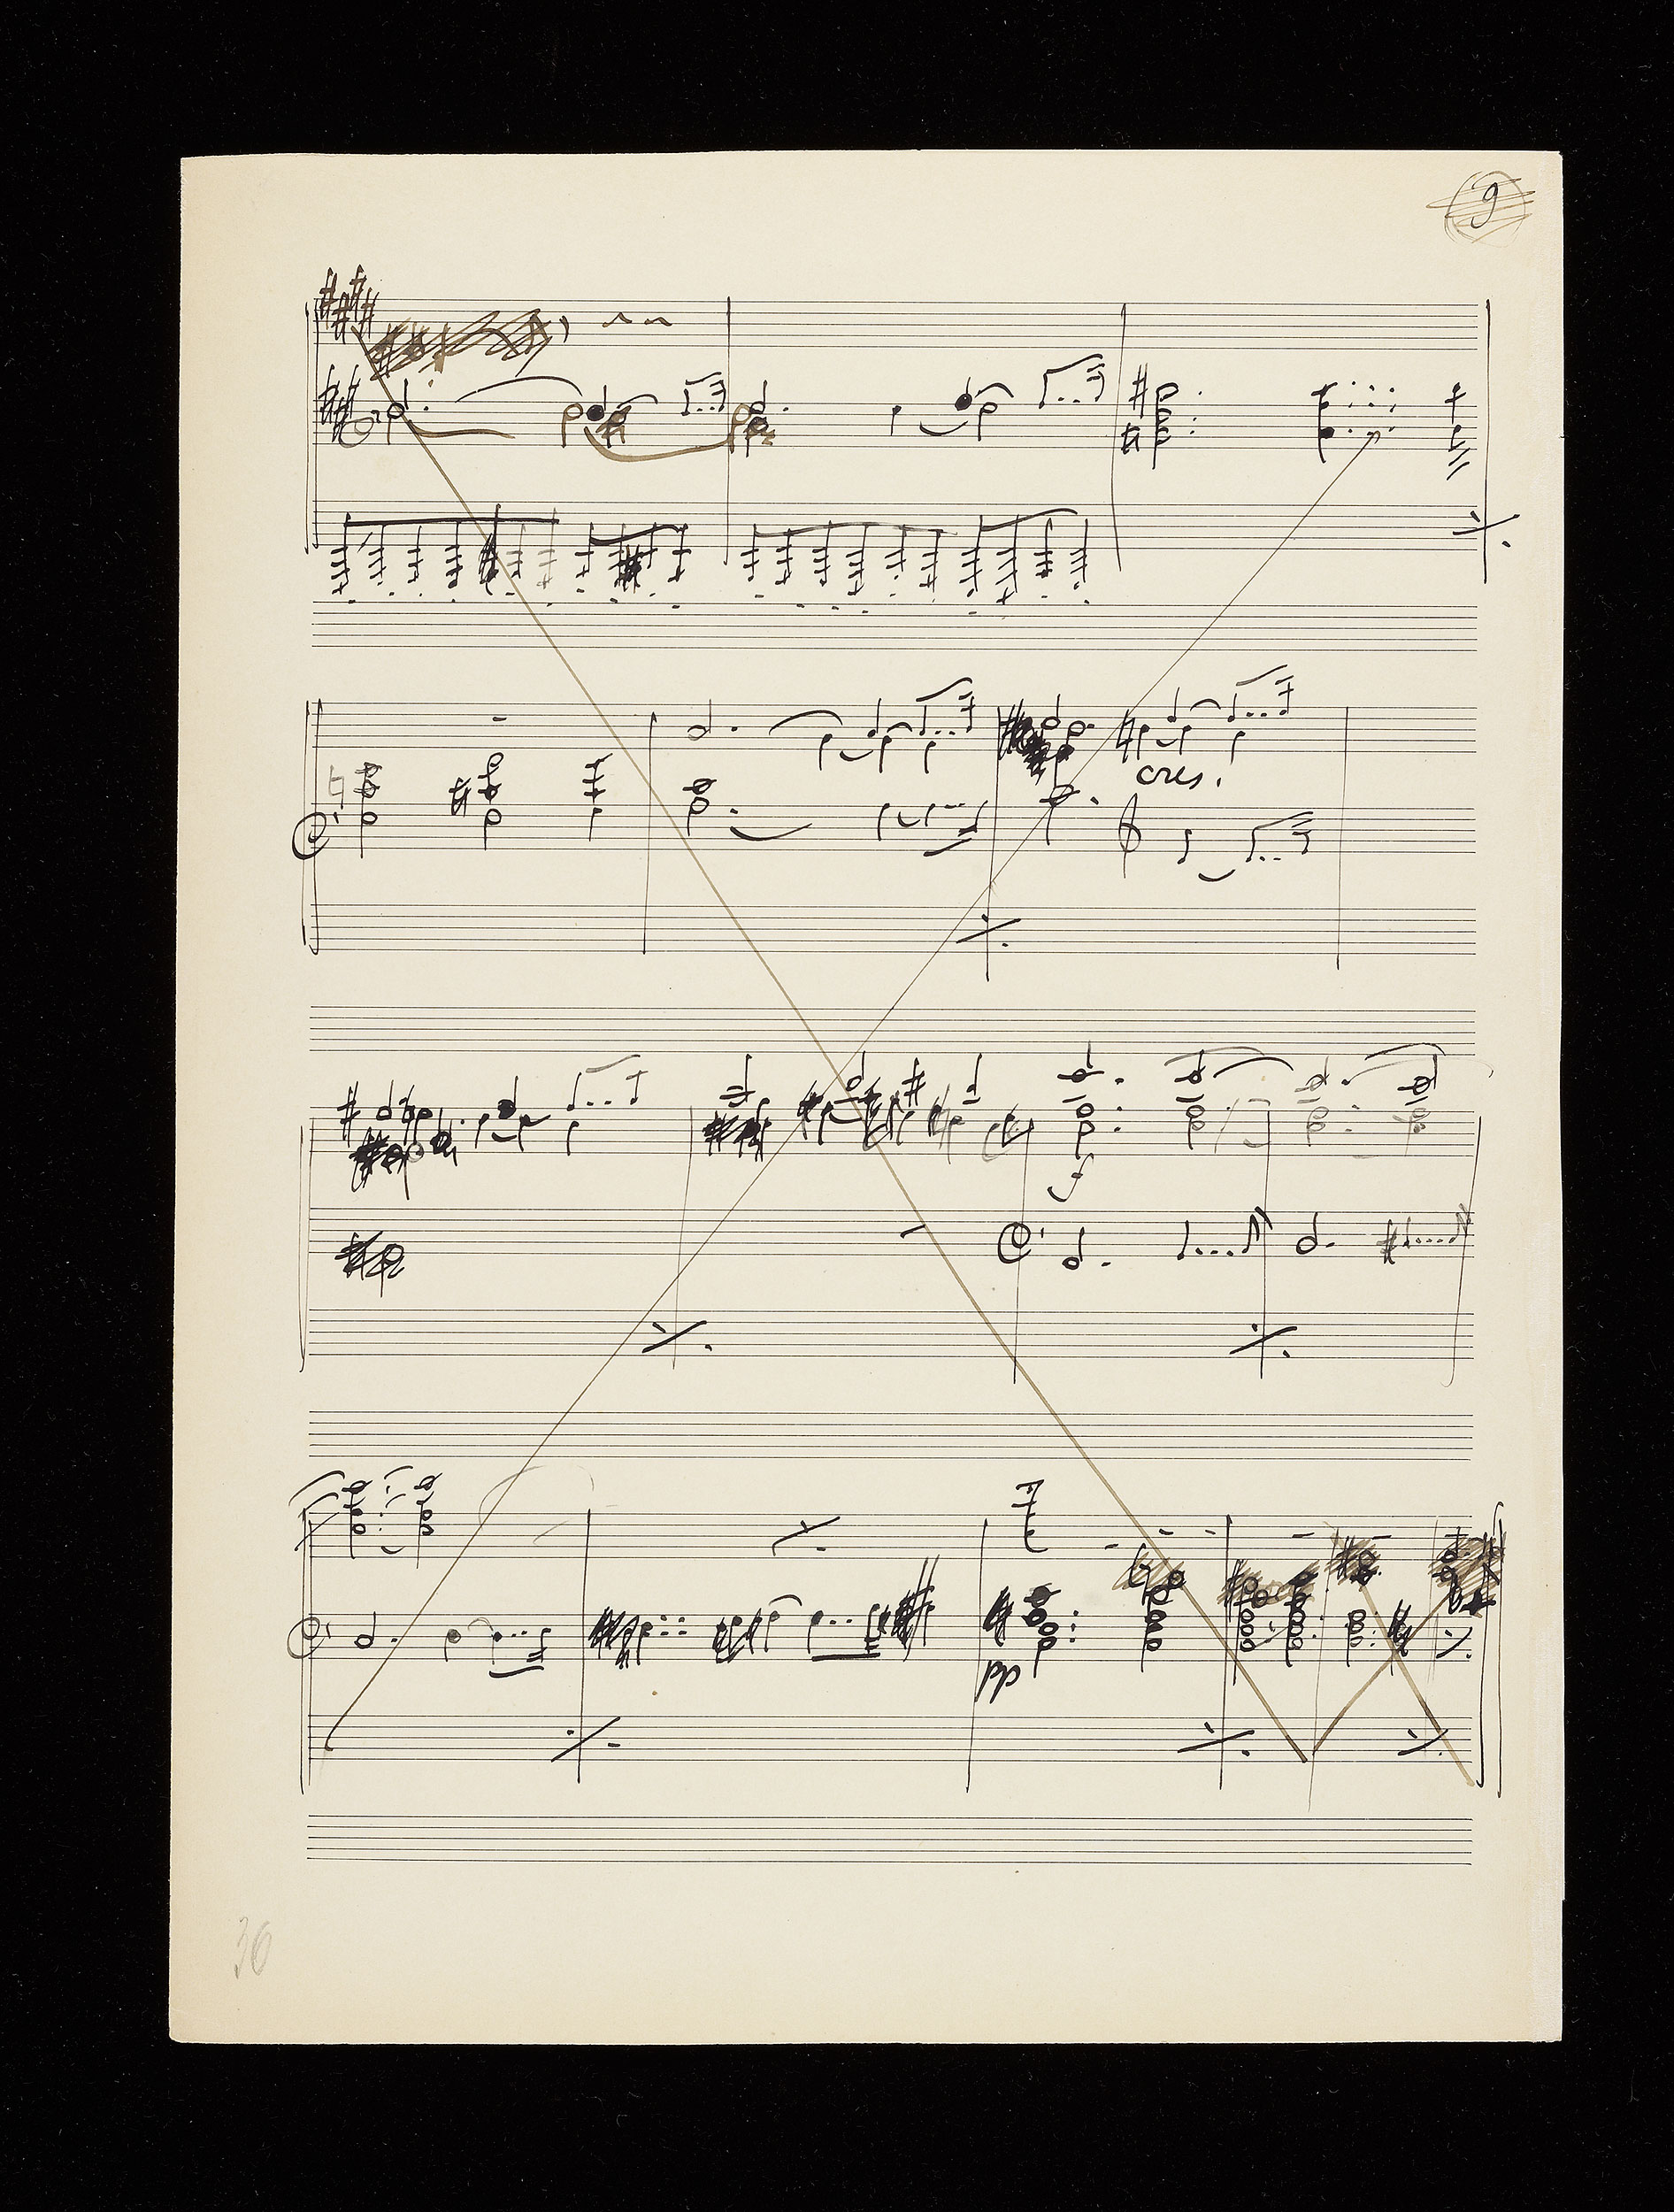 9
cres.
f
pp
30